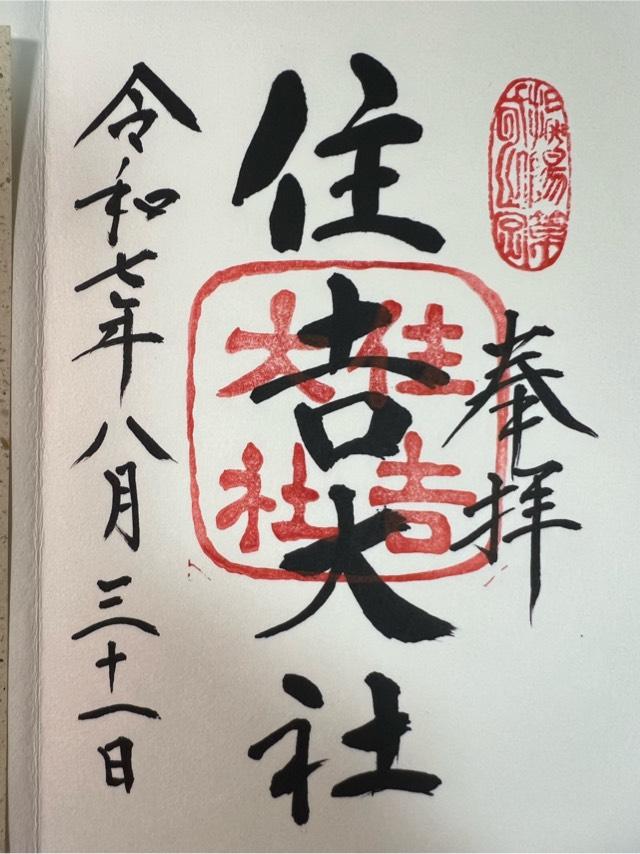 奉拝
住吉大社
住吉
大社
令和七年八月三十一日